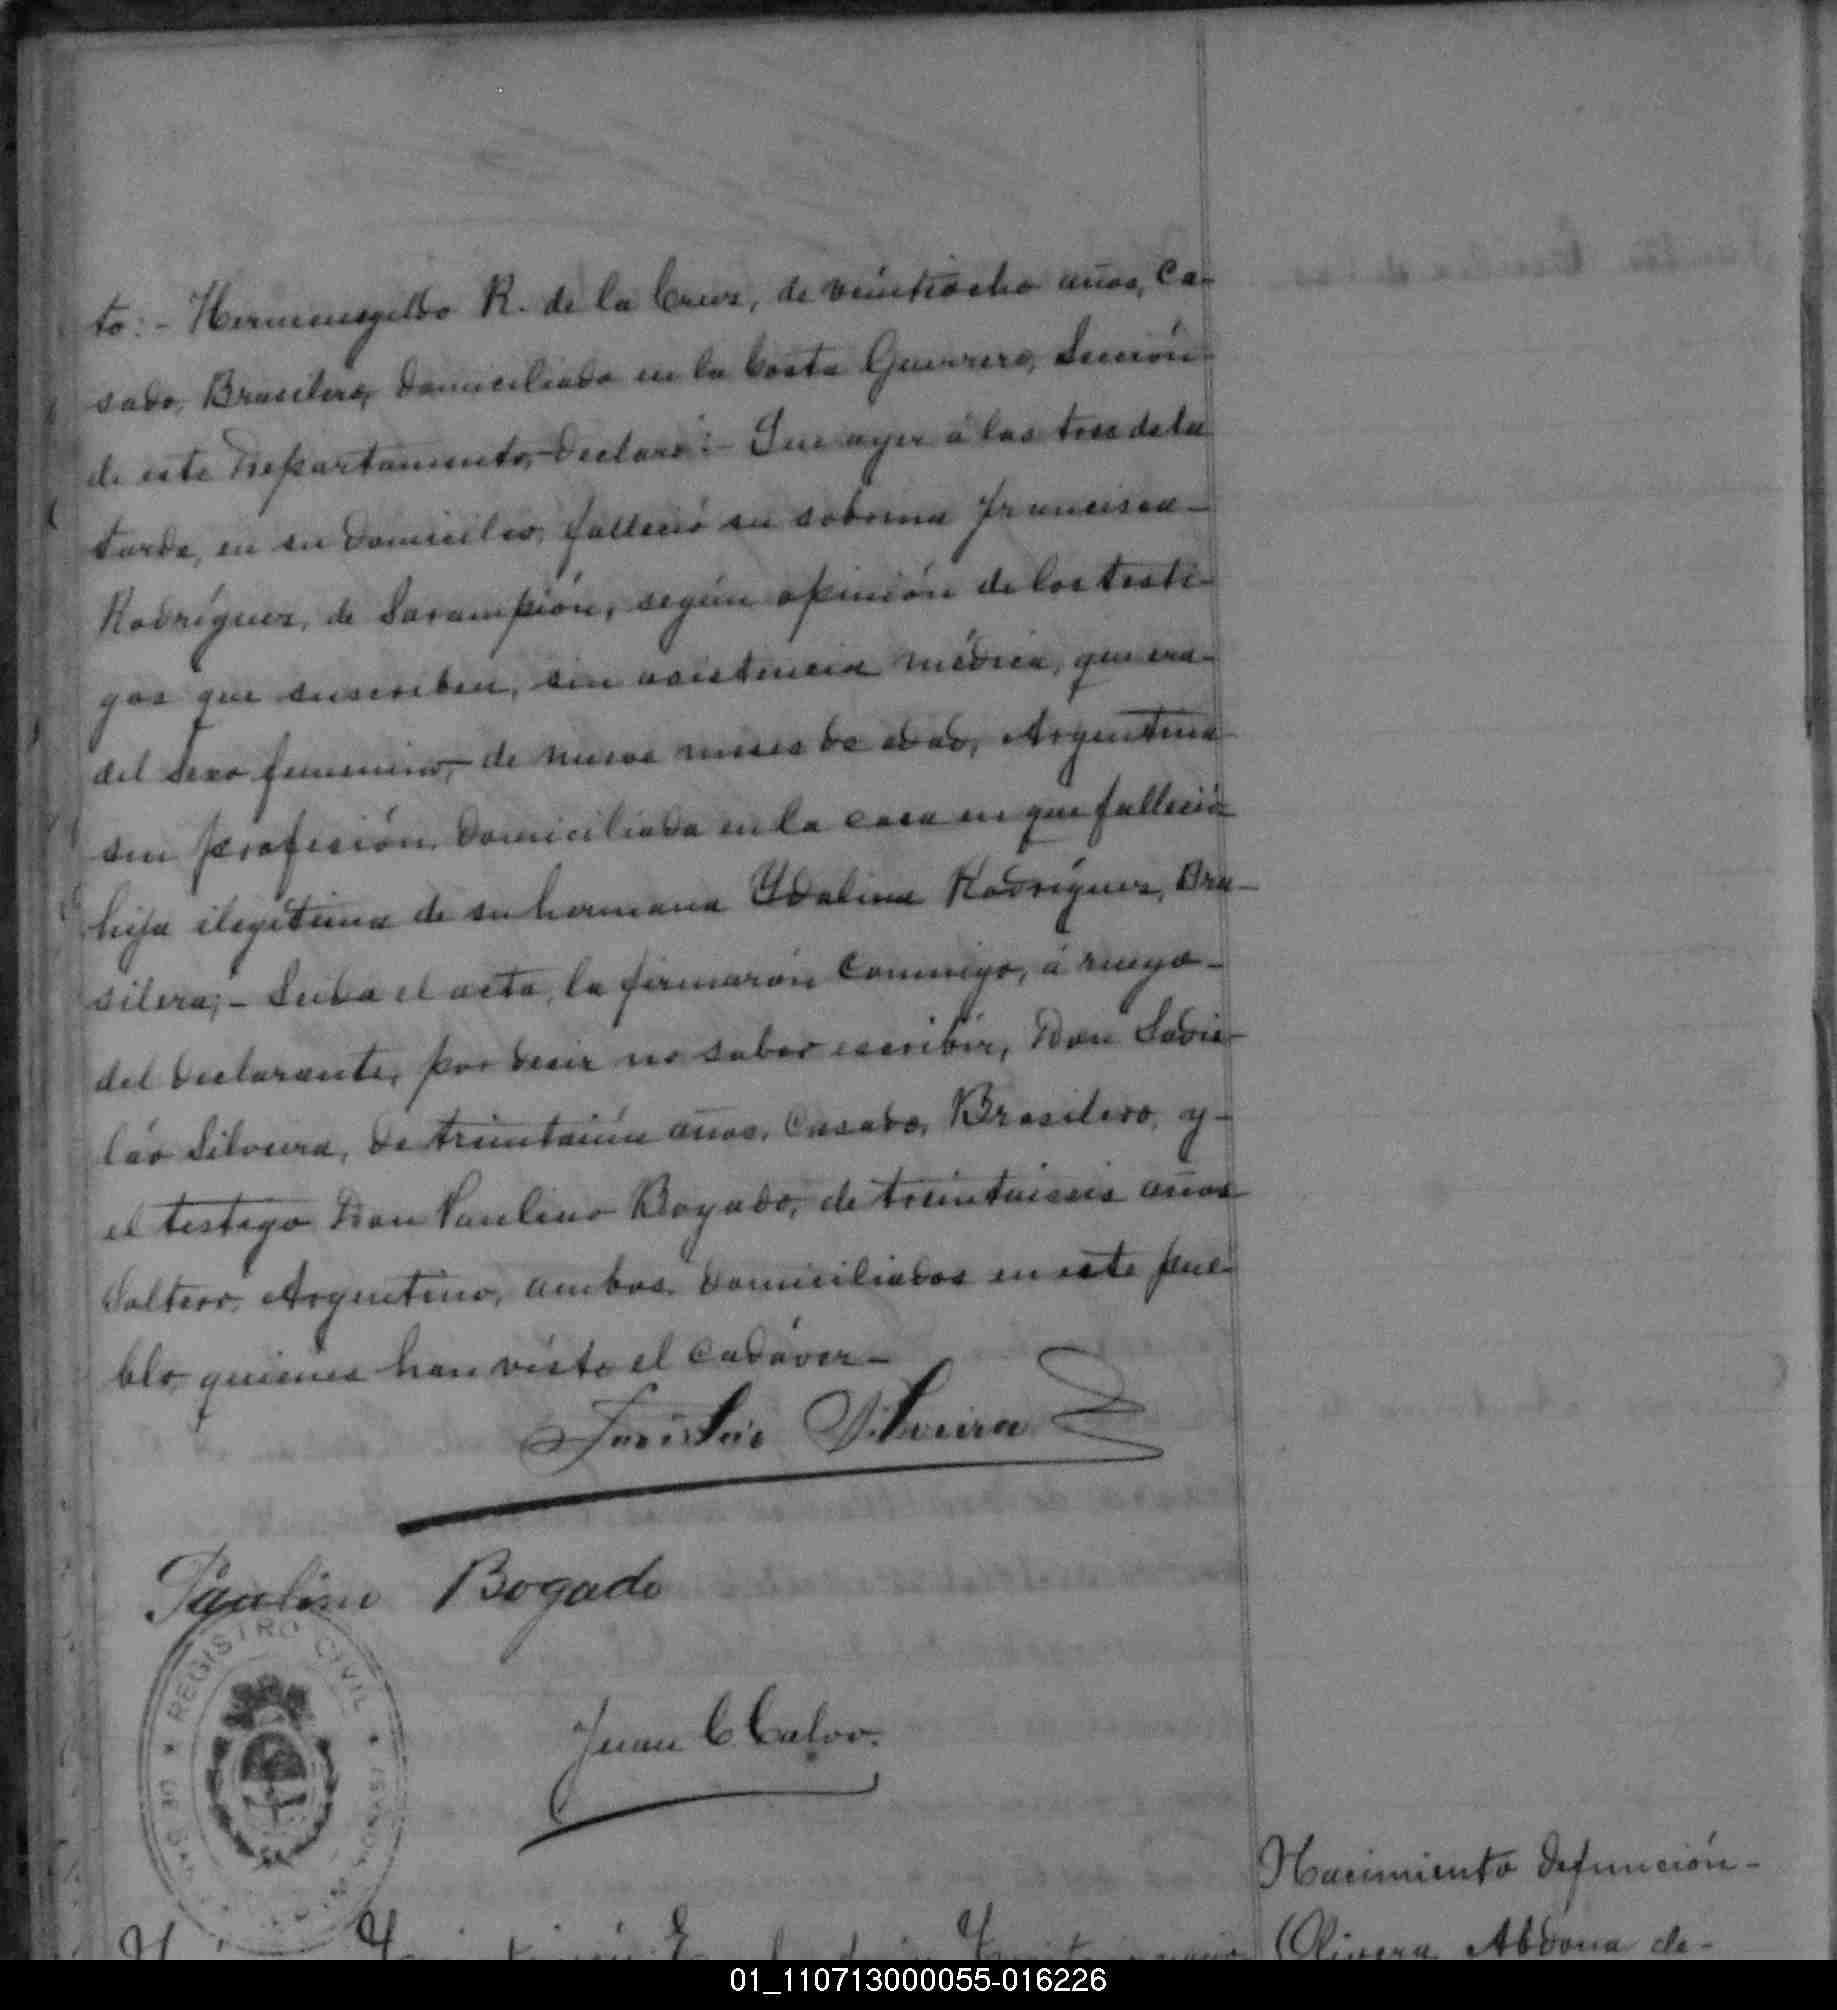 to:- Hermenegildo R. de la Cruz, de veintiocho años, ca-
sado, Brasilero, domiciliado en la Costa Guerrero, Sección-
de este Departamento,- declaró:- Que ayer á las tres de la
tarde, en su domicilio, falleció su sobrina Francisca-
Rodríguez, de Sarampión, según opinión de los testi-
gos que suscriben, sin asistencia médica, que era-
del sexo femenino,- de nueve meses de edad, Argentina
sin profesión, domiciliada en la casa en que falleció
hija ilegítima de su hermana Ydalina Rodríguez, Bra-
silera;- Leida el acta, la firmarón conmigo, á ruego-
del declarante, por decir no saber escribir, Don
Silveira, de treintaiún años, Casado, Brasilero, y-
el testigo Don Paulino Bogado, de treintaiseis años
Soltero, Argentino, ambos domiciliados en este pue-
blo, quienes han visto el cadáver-
Silveira
Paulino Bogado
REGISTRO CIVIL
Juan C Calvo.
Nacimiento defunción-
Olivera Abdona de-
01_110713000055-016226